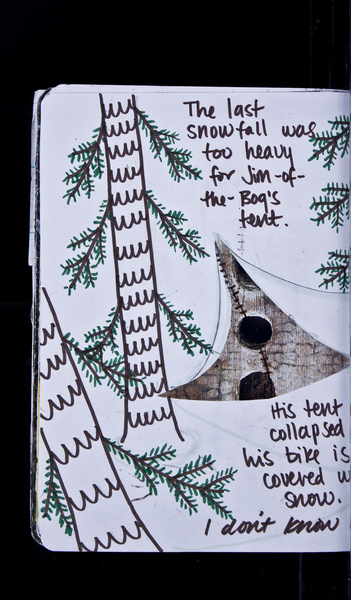 The last
snowfall was
too heavy
for Jim-of-
the-Bog's
tent.
His tent
collapsed
his bike is
covered w
snow.
I don't know